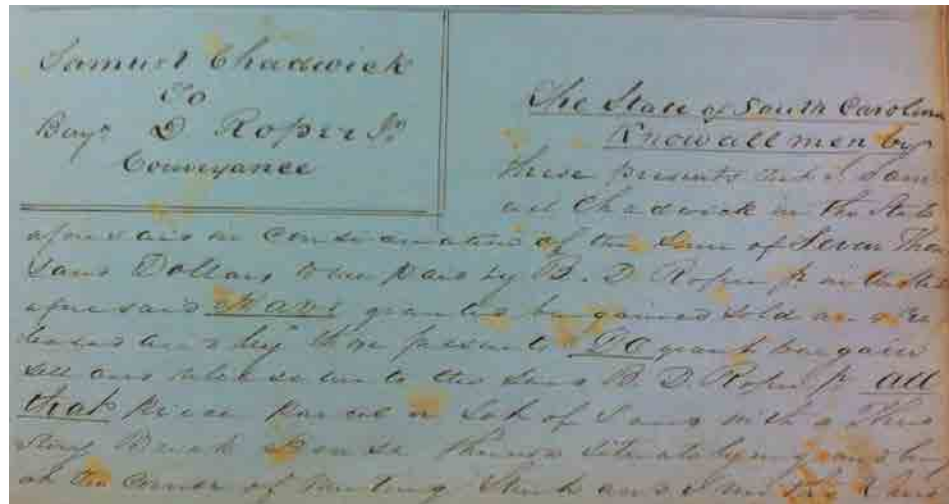 Samuel Chadwick
To
Benj. D Roper Jr.
Conveyance
The State of South Carolina
Know all men by
these presents that I Sam
uel Chadwick in the State
aforesaid in consideration of the Sum of Seven Thou
sand Dollars to me paid by B. D. Roper Jr in the State
aforesaid Have granted bargained sold and re
leased and by these presents DO grant bargain
sell and release unto the said B. D. Roper Jr all
that piece parcel or Lot of Land with a Three
Story Brick House thereon situate lying and being
at the corner of Meeting Street and Smiths Lane